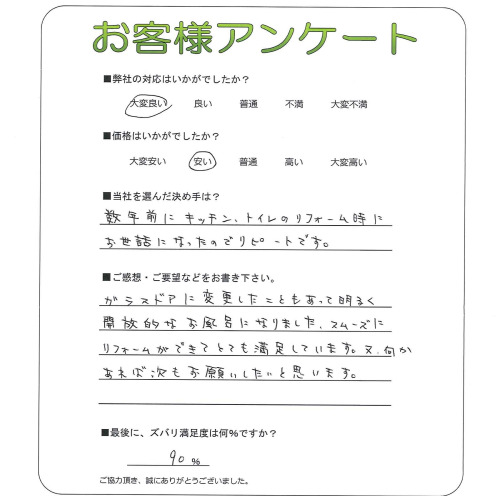 お客様アンケート
■弊社の対応はいかがでしたか？
大変良い 良い 普通 不満 大変不満
■価格はいかがでしたか？
大変安い 安い 普通 高い 大変高い
■当社を選んだ決め手は？
数年前にキッチン、トイレのリフォーム時に
お世話になったのでリピートです。
■ご感想・ご要望などをお書き下さい。
ガラスドアに変更したこともあって明るく
開放的なお風呂になりました、スムーズに
リフォームができてとても満足しています。又、何か
あれば次もお願いしたいと思います。
■最後に、ズバリ満足度は何%ですか？
90 %
ご協力頂き、誠にありがとうございました。